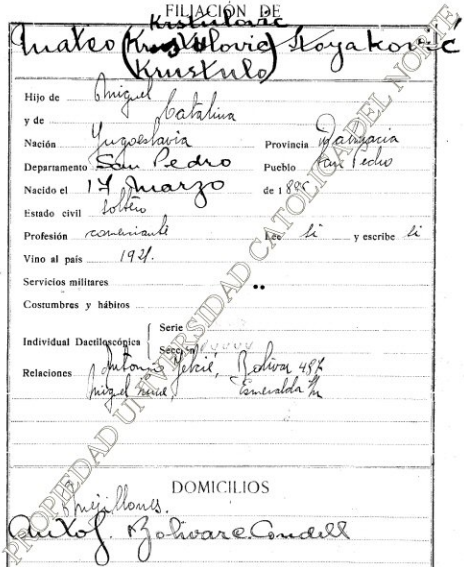 FILIACIÓN DE
Krstulovic
Mateo (Krustulovic) Stoyakovic
Krustulo)
Hijo de Miguel
y de Catalina
Nación Yugoeslavia Provincia Dalmacia
Departamento San Pedro Pueblo San Pedro
Nacido el 17 Marzo de 18
Estado civil soltero
Profesión comerciante Lee si y escribe si
Vino al país 1921.
Servicios militares
Costumbres y hábitos
Individual Dactiloscópica Serie
Sección
Relaciones Antonio Bolivar 487
Miguel Esmeralda
DOMICILIOS
Mejillones.
Antof. Bolivar e. Condell
PROPIEDAD UNIVERSIDAD CATOLICA DEL NORTE